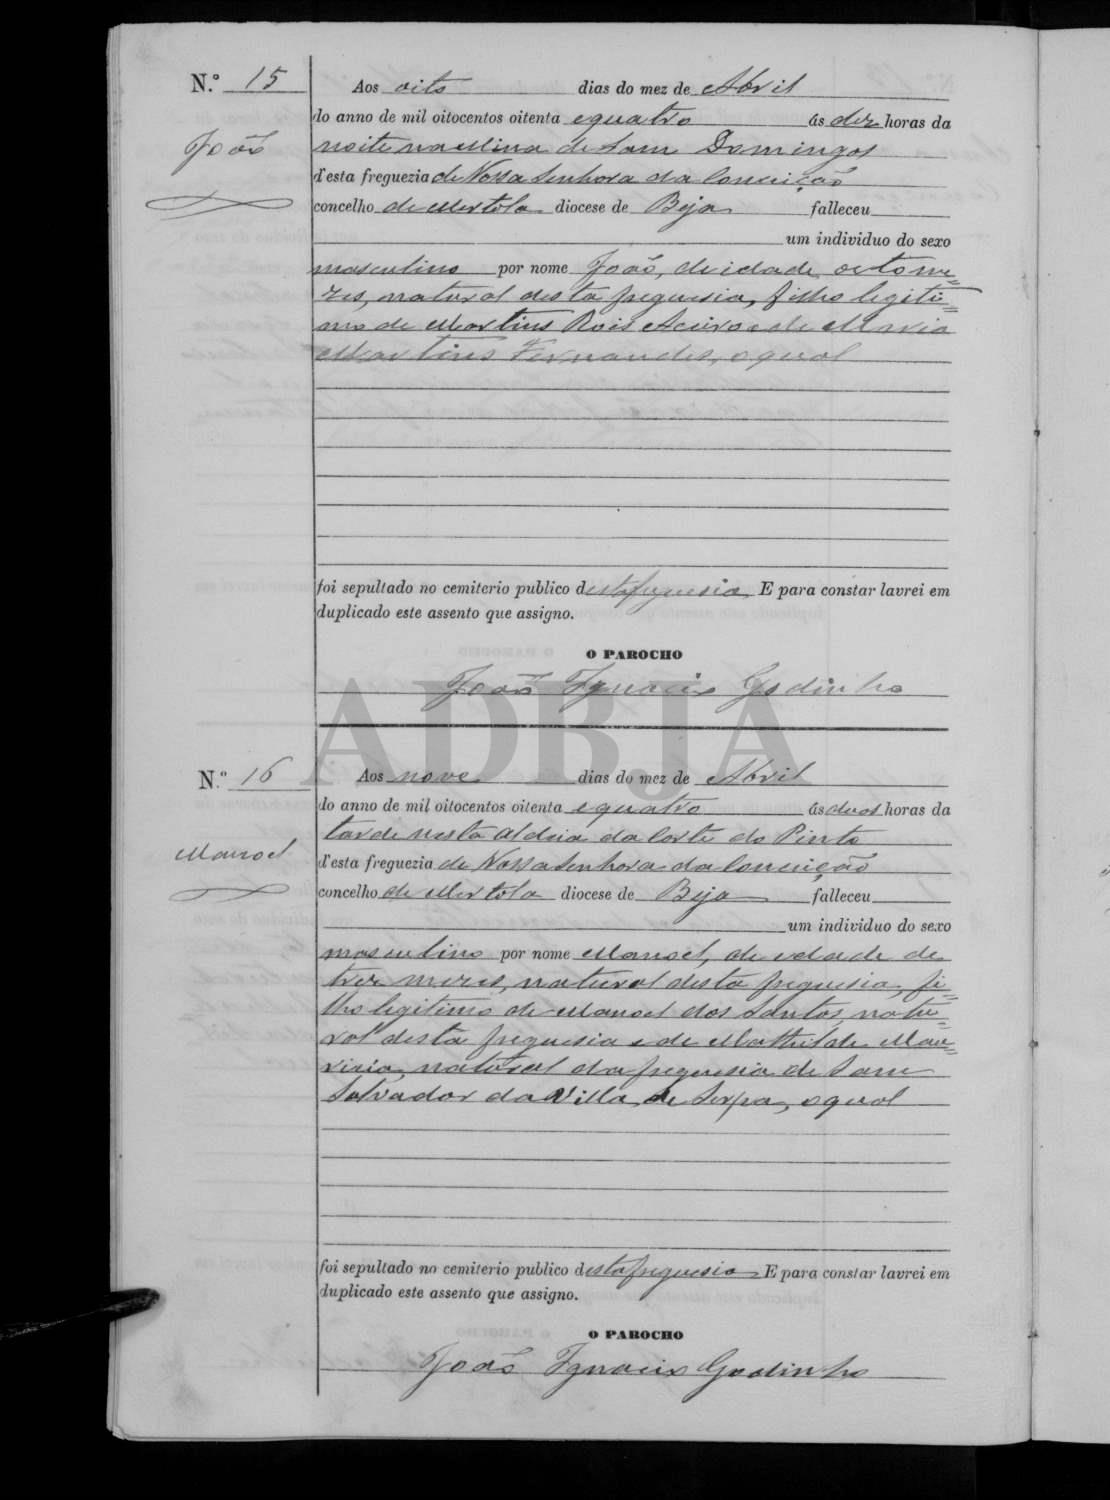 N.º 15
João
Aos oito dias do mez de Abril
do anno de mil oitocentos oitenta e quatro ás dez horas da
noite na Mina de Sam Domingos
d'esta freguezia de Nossa Senhora da Conceição
concelho de Mertola diocese de Beja falleceu
um individuo do sexo
masculino por nome João, de idade oito me=
zes, natural desta freguesia, filho legiti=
mo de Martins Rois e de Maria
Martins Fernandes, o qual
foi sepultado no cemiterio publico desta freguesia E para constar lavrei em
duplicado este assento que assigno.
O PAROCHO
João Ignacio Godinho
ADBJA
N.º 16
Manoel
Aos nove dias do mez de Abril
do anno de mil oitocentos oitenta e quatro ás duas horas da
tarde nesta aldeia da Corte do Pinto
d'esta freguezia de Nossa Senhora da Conceição
concelho de Mertola diocese de Beja falleceu
um individuo do sexo
masculino por nome Manoel, de idade de
trez mezes, natural desta freguesia, fi=
lho legitimo de Manoel dos Santos, natu=
ral desta freguesia e de Mathilde
natural da freguesia de Sam
Salvador da Villa de Serpa, o qual
foi sepultado no cemiterio publico desta freguesia E para constar lavrei em
duplicado este assento que assigno.
O PAROCHO
João Ignacio Godinho